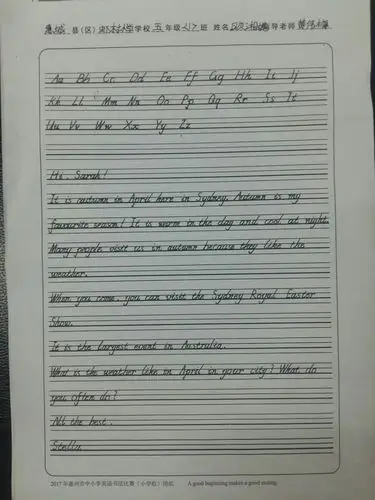 惠城 县(区) 学校 五 年级 班 姓名 指导老师 黄
Aa Bb Cc Dd Ee Ff Gg Hh Ii Jj
Kk Ll Mm Nn Oo Pp Qq Rr Ss Tt
Uu Vv Ww Xx Yy Zz
Hi, Sarah!
It is autumn in April here in Sydney. Autumn is my
favourite season! It is warm in the day and cool at night.
Many people visit us in autumn because they like the
weather.
When you come, you can visit the Sydney Royal Easter
Show.
It is the largest event in Australia.
What is the weather like in April in your city? What do
you often do?
All the best.
Stella
2017年惠州市中小学英语书法比赛(小学组)用纸 A good beginning makes a good ending.